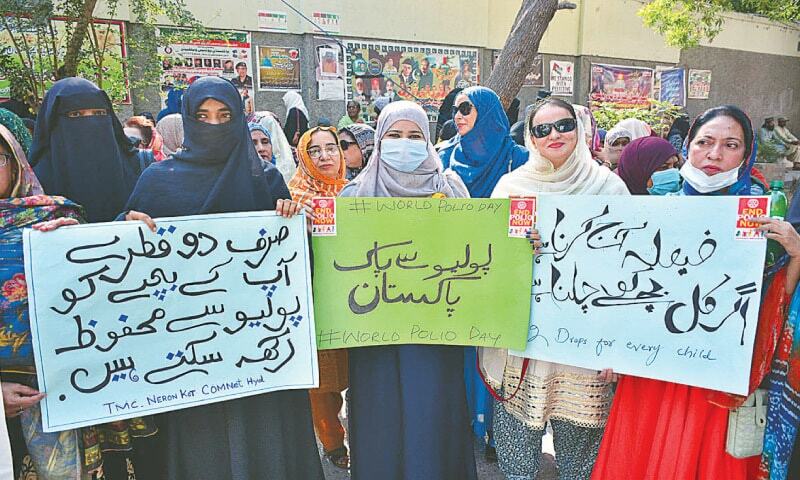 صرف دو قطرے
آپ کے بچے کو
پولیو سے محفوظ
رکھ سکتے ہیں.
TMC. NERON KOT COMNet Hyd
END
POLIO
NOW
# WORLD POLIO DAY
پولیو سے پاک
پاکستان
# WORLD POLIO DAY
END
POLIO
NOW
فیصلہ آج کرنا ہے
اگر کل بچے کو چلنا ہے
2 Drops for every child
END
POLIO
NOW
END
POLIO
NOW